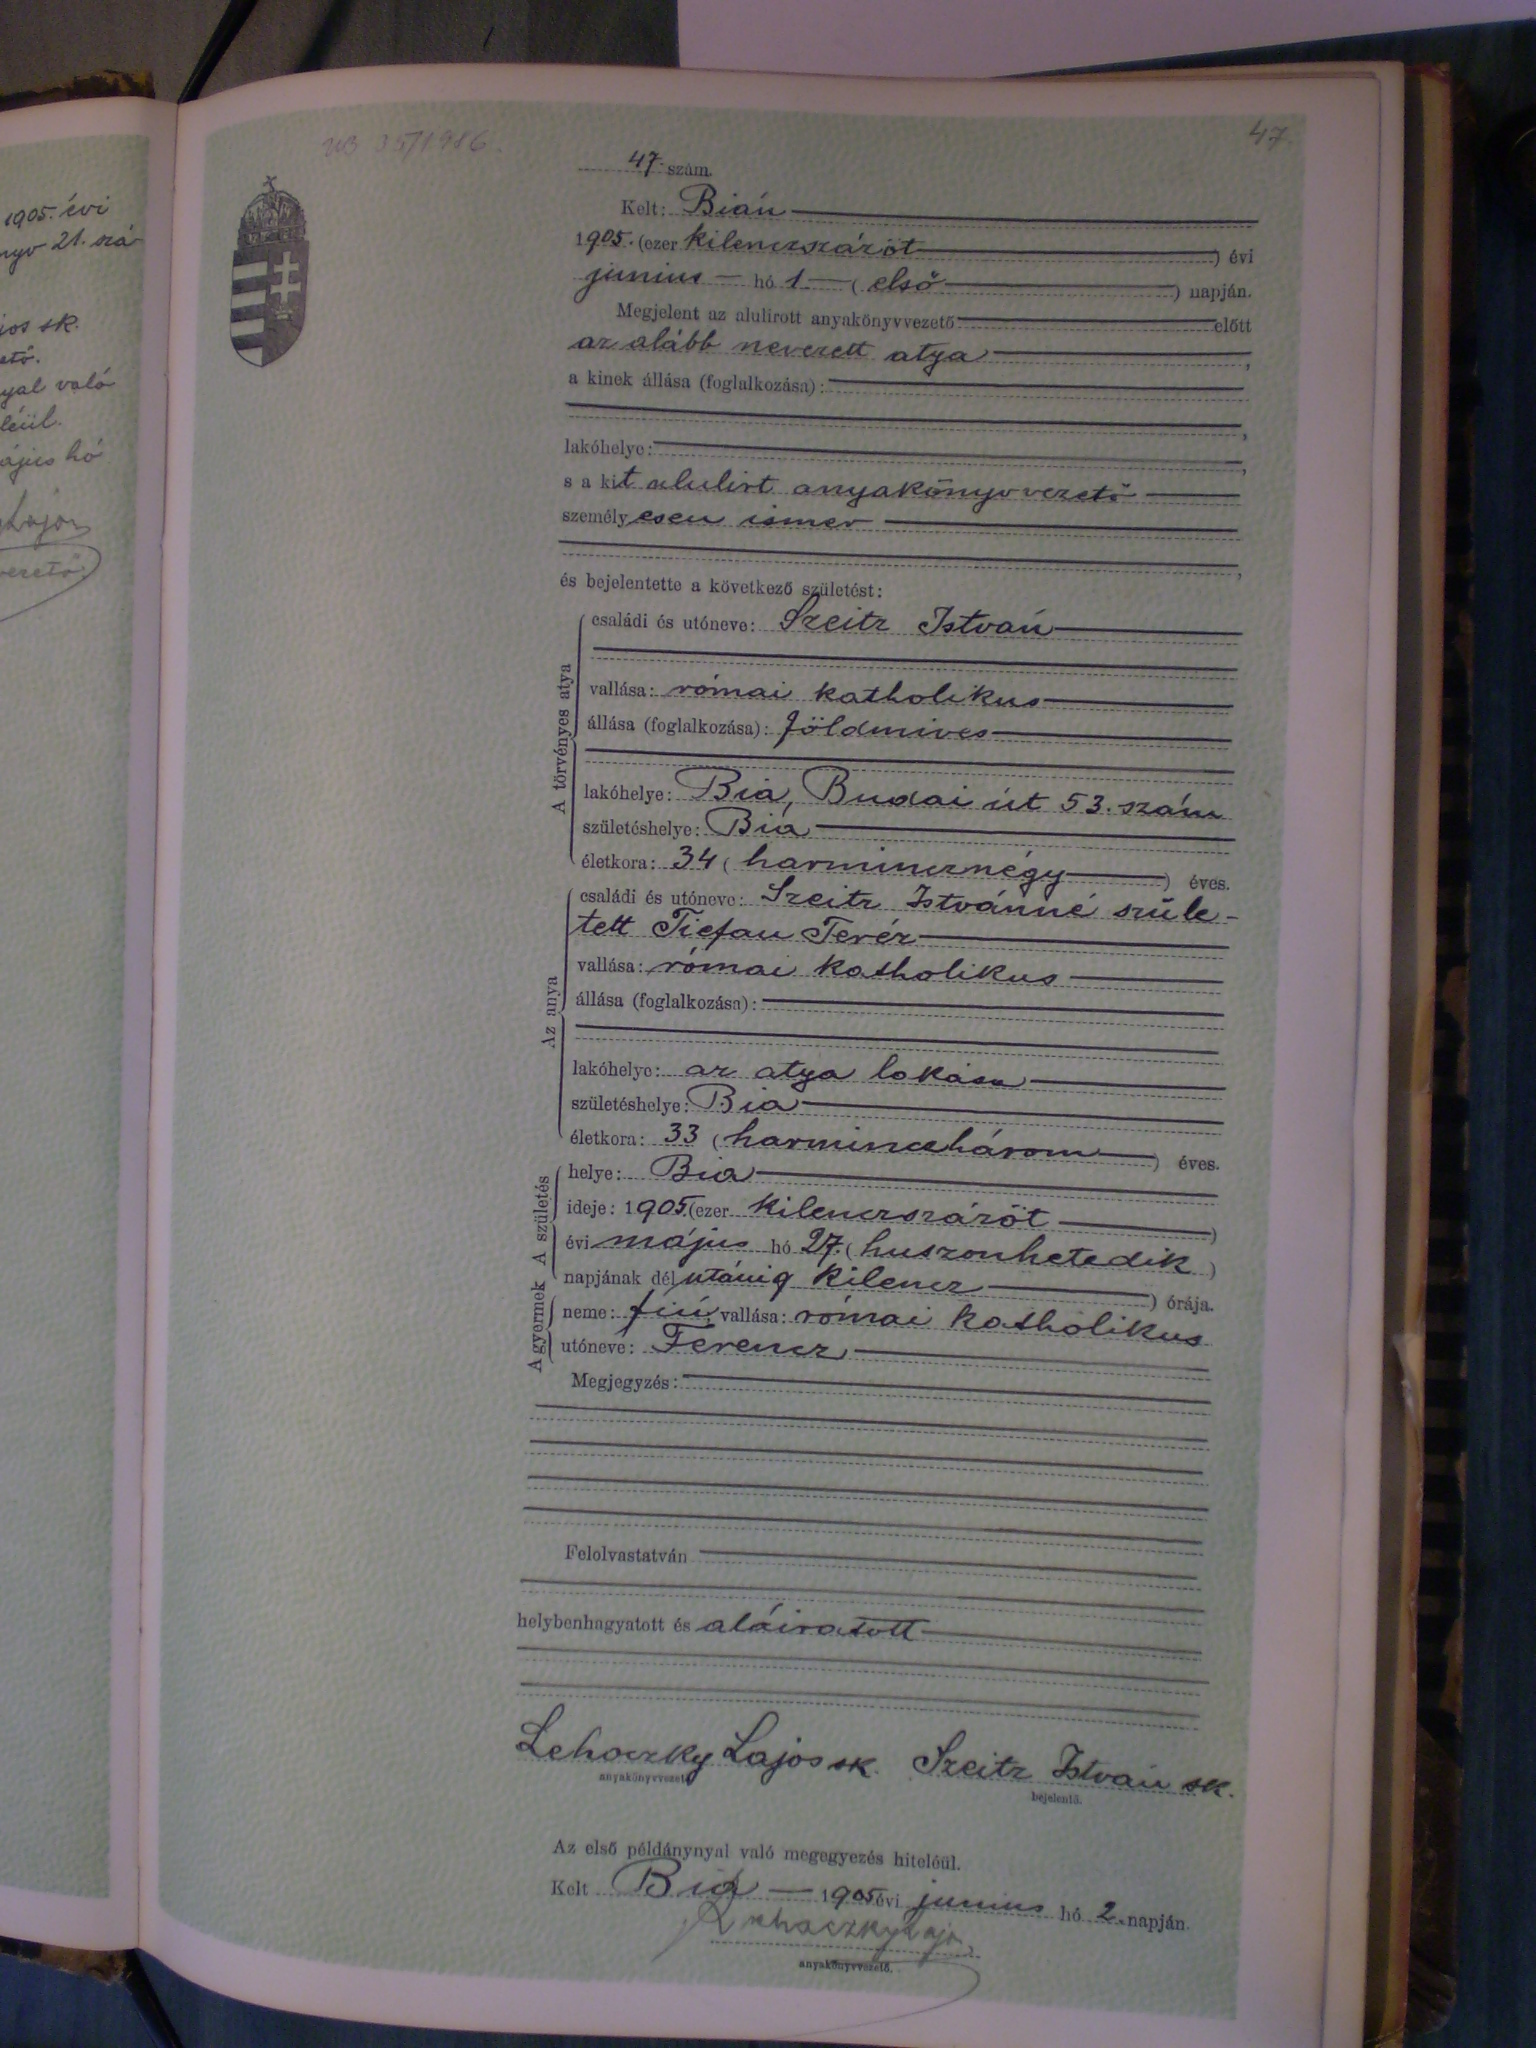 1905. évi
nyv 21. szá-
ios sk.
ető.
yal való
léül.
ájus hó
Lajos
vezető.
35/1986.
47
47. szám.
Kelt: Bián
1905. (ezer kilenczszázöt) évi
junius hó 1 (első) napján.
Megjelent az alulirott anyakönyvvezető előtt
az alább nevezett atya,
a kinek állása (foglalkozása):
,
lakóhelye: ,
s a kit alulirt anyakönyvvezető
személyesen ismer
,
és bejelentette a következő születést:
A törvényes atya
családi és utóneve: Szeitz István
vallása: római katholikus
állása (foglalkozása): földmives
lakóhelye: Bia, Budai út 53. szám
születéshelye: Bia
életkora: 34 (harmincznégy) éves.
Az anya
családi és utóneve: Szeitz Istvánné szüle-
tett Tiefau Teréz
vallása: római katholikus
állása (foglalkozása):
lakóhelye: az atya lakása
születéshelye: Bia
életkora: 33 (harminczhárom) éves.
A születés
helye: Bia
ideje: 1905. (ezer kilenczszázöt)
évi május hó 27. (huszonhetedik)
napjának délutáni 9 kilencz) órája.
A gyermek
neme: fiú, vallása: római katholikus
utóneve: Ferencz
Megjegyzés:
Felolvastatván
helybenhagyatott és aláiratott
Lehoczky Lajos sk. Szeitz István sk.
anyakönyvvezető bejelentő.
Az első példánynyal való megegyezés hiteléül.
Kelt Bia 1905 évi junius hó 2. napján.
Lehoczky Lajos
anyakönyvvezető.